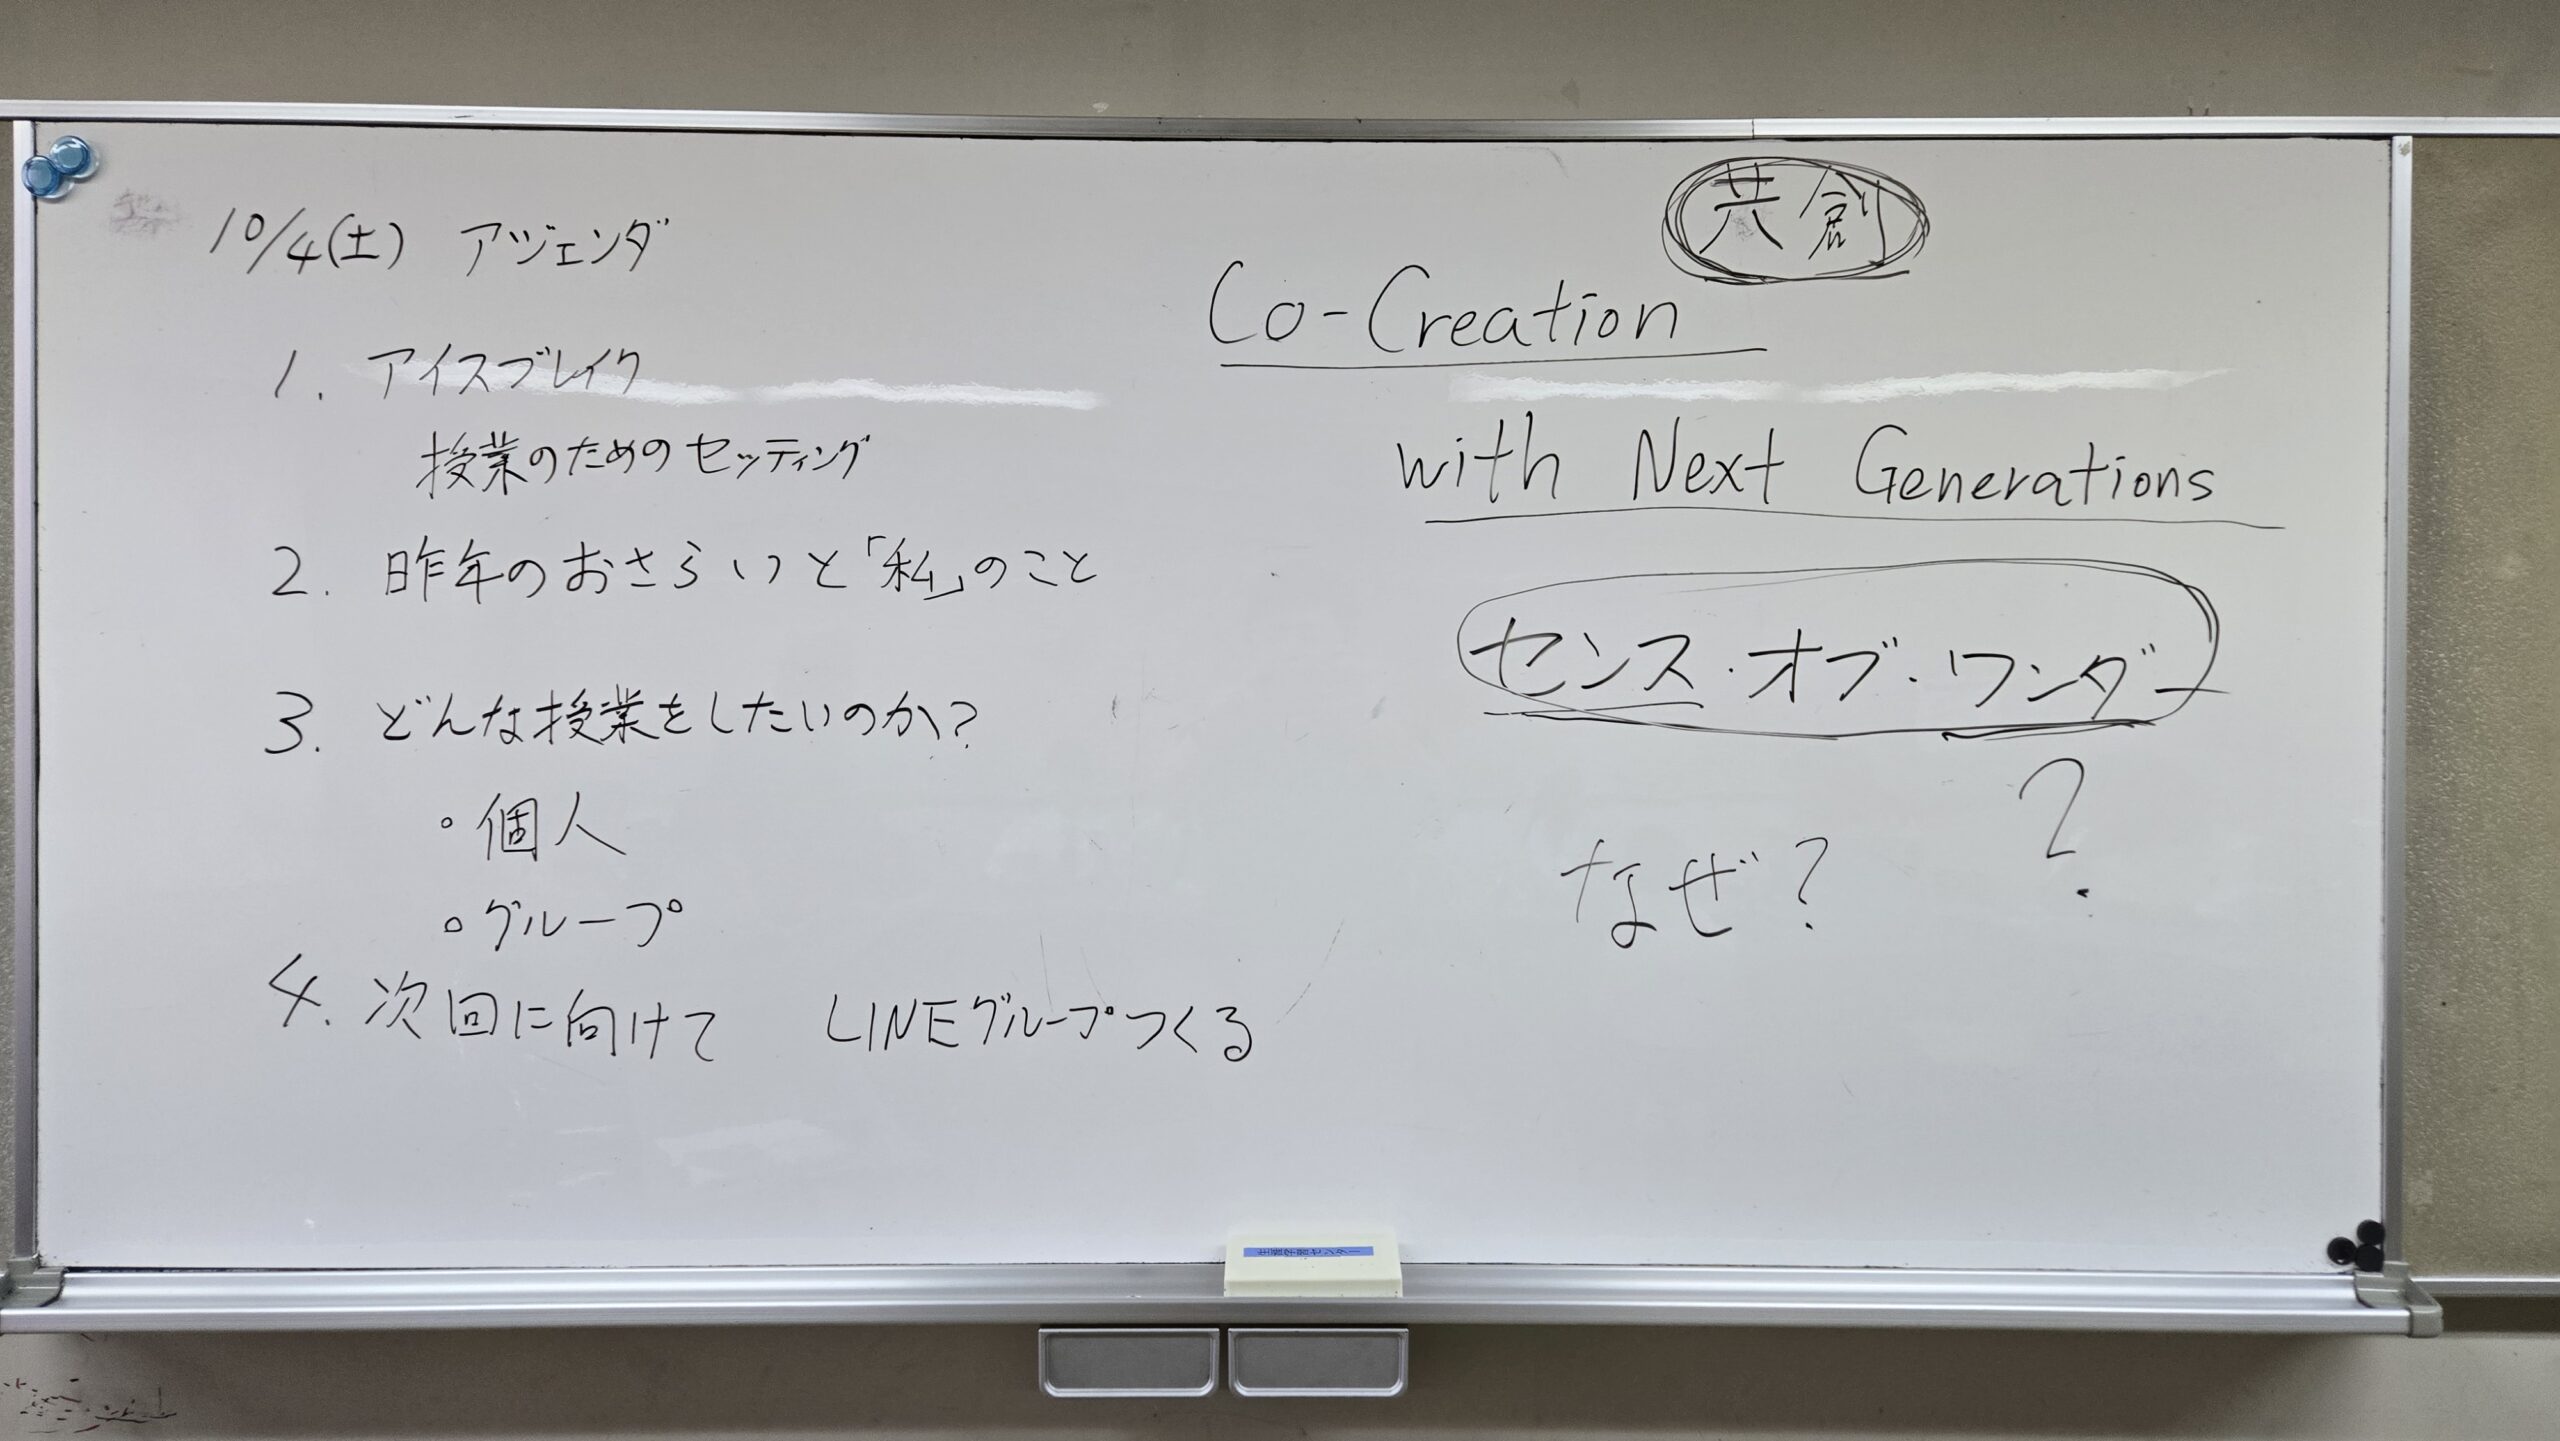 10/4(土) アジェンダ
1. アイスブレイク
授業のためのセッティング
2. 昨年のおさらいと「私」のこと
3. どんな授業をしたいのか?
・個人
・グループ
4. 次回に向けて LINEグループつくる
共創
Co-Creation
with Next Generations
センス・オブ・ワンダー
?
なぜ?
生涯学習センター